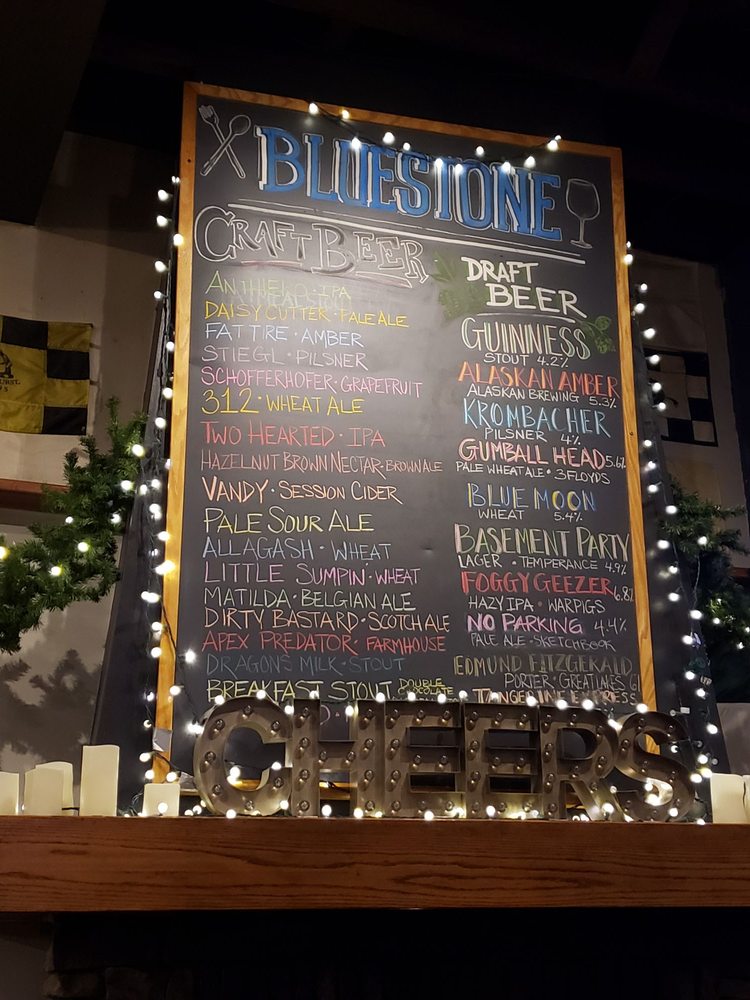 BLUESTONE
CRAFT BEER
ANTHIERO · IPA
DAISY CUTTER · PALE ALE
FAT TIRE · AMBER
STIEGL · PILSNER
SCHOFFERHOFER · GRAPEFRUIT
312 · WHEAT ALE
TWO HEARTED · IPA
HAZELNUT BROWN NECTAR · BROWN ALE
VANDY · SESSION CIDER
PALE SOUR ALE
ALLAGASH · WHEAT
LITTLE SUMPIN · WHEAT
MATILDA · BELGIAN ALE
DIRTY BASTARD · SCOTCH ALE
APEX PREDATOR · FARMHOUSE
DRAGONS MILK · STOUT
BREAKFAST STOUT DOUBLE
CHOCOLATE
DRAFT
BEER
GUINNESS
STOUT 4.2%
ALASKAN AMBER
ALASKAN BREWING 5.3%
KROMBACHER
PILSNER 4%
GUMBALL HEAD 5.6%
PALE WHEAT ALE · 3 FLOYDS
BLUE MOON
WHEAT 5.4%
BASEMENT PARTY
LAGER · TEMPERANCE 4.9%
FOGGY GEEZER 6.8%
HAZY IPA · WARPIGS
NO PARKING 4.4%
PALE ALE · SKETCHBOOK
EDMUND FITZGERALD
PORTER · GREAT LAKES
TANGERINE EXPRESS
CHEERS